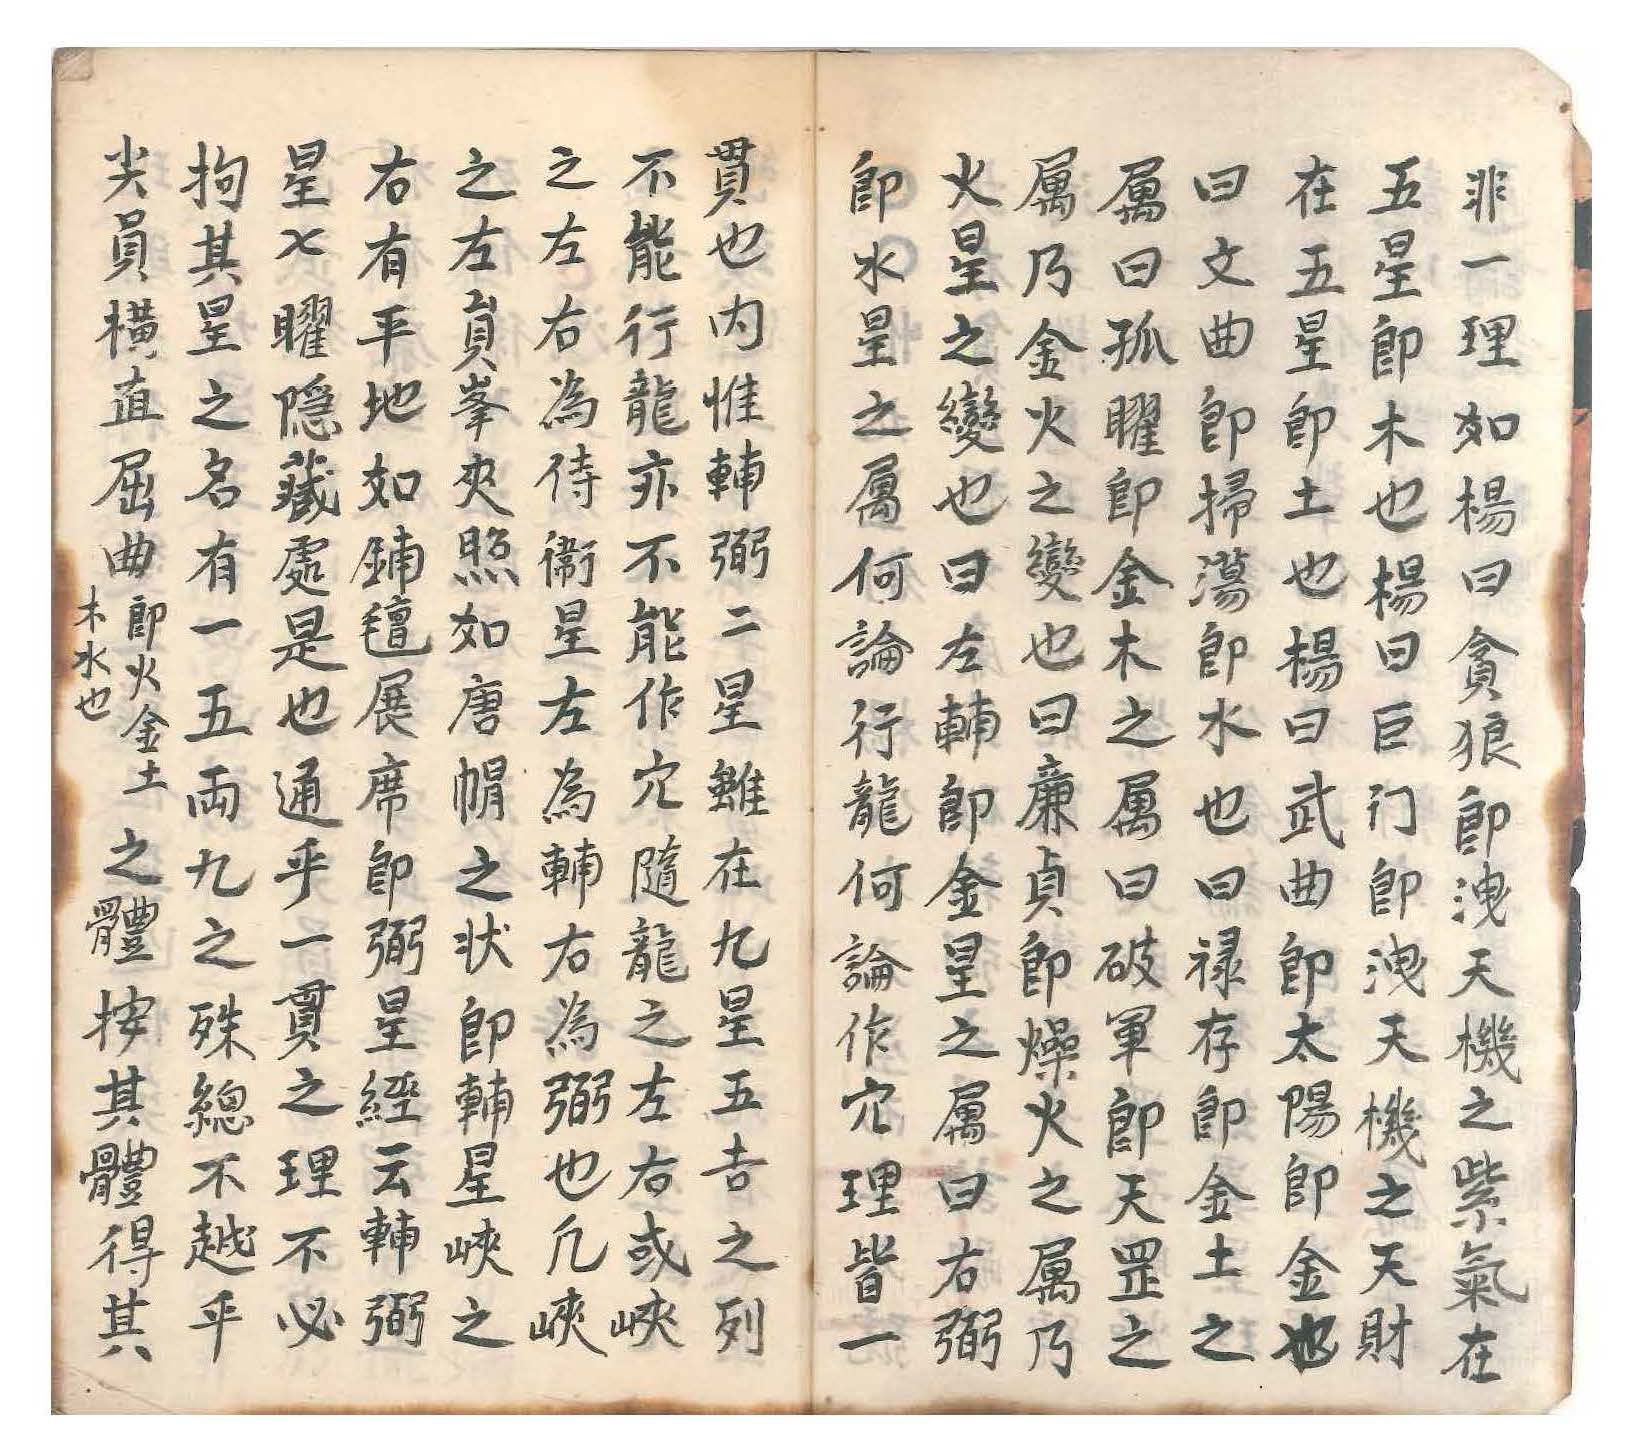 非一理如楊曰貪狼即洩天機之紫氣在
五星即木也楊曰巨门即洩天機之天財
在五星即土也楊曰武曲即太陽即金也
曰文曲即掃蕩即水也曰禄存即金土之
属曰孤曜即金木之属曰破軍即天罡之
属乃金火之變也曰廉貞即燥火之属乃
火星之變也曰左輔即金星之属曰右弼
即水星之属何論行龍何論作穴理皆一
貫也内惟輔弼二星雖在九星五吉之列
不能行龍亦不能作穴隨龍之左右或峽
之左右為侍衞星左為輔右為弼也凢峽
之左員峯夾照如唐帽之状即輔星峽之
右有平地如鋪氊展席即弼星經云輔弼
星七曜隠藏處是也通乎一貫之理不必
拘其星之名有一五両九之殊總不越乎
尖員横直屈曲即火金土木水也之體按其體得其